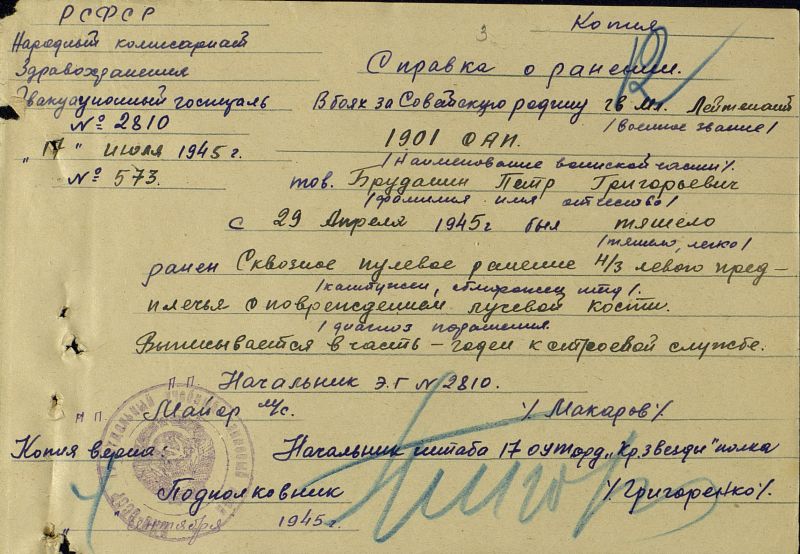 РСФСР
Копия
3
12
Народный комиссариат
Здравохранения
Справка о ранении.
Эвакуационный госпиталь
В боях за Советскую родину гв мл. Лейтенант
№ 2810
/военное звание/
1901 ОАП.
"17" июля 1945 г.
/Наименование воинской части/.
№ 573.
тов. Брудашин Петр Григорьевич
/фамилия имя отчество/
с 29 Апреля 1945 г был тяшело
/тяшело, легко/
ранен Сквозное пулевое ранение Н/3 левого пред-
/контужен, обморожен итд/.
плечья с повреждением лучевой кости.
/диагноз поражения.
Выписывается в часть – годен к строевой службе.
ПП Начальник Э.Г № 2810.
МП. Майор м/с. /Макаров/
Копия верна: Начальник штаба 17 оуторд. „Кр. Звезды" полка
Подполковник /Григоренко/.
сентября 1945 г.